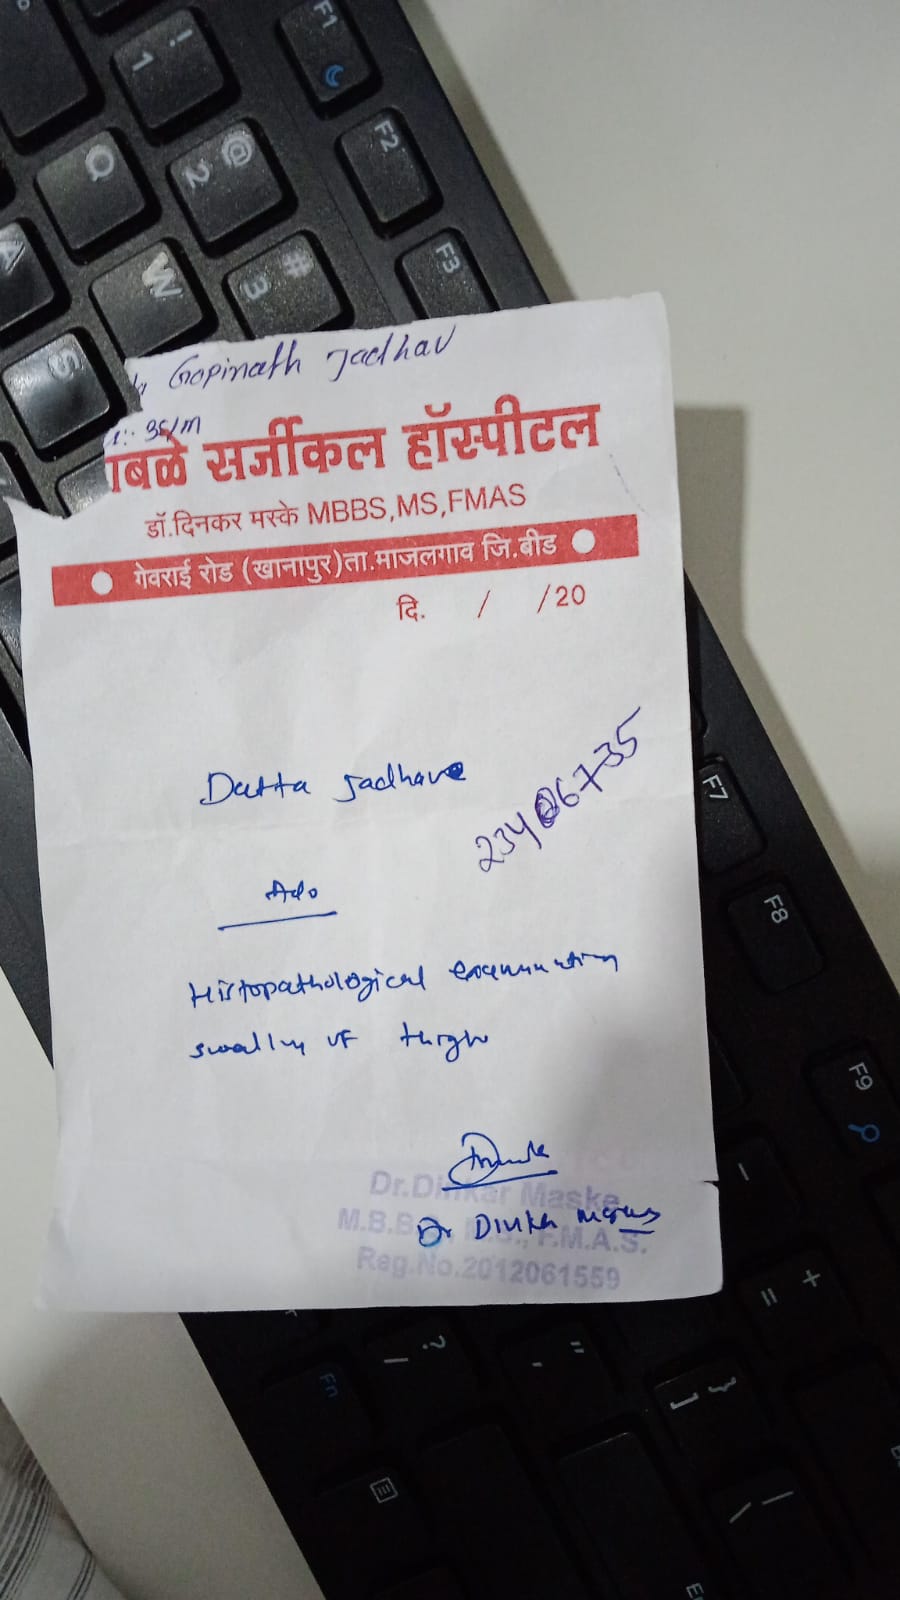 Gopinath Jadhav
35/M
बळे सर्जीकल हॉस्पीटल
डॉ.दिनकर मस्के MBBS,MS,FMAS
गेवराई रोड (खानापुर)ता.माजलगाव जि.बीड
दि. / /20
Datta Jadhav
23406735
Ado
Histopathological examination
swelling of thigh
Dr.Dinkar Maske
M.B.B.S., M.S., F.M.A.S.
Dr Dinkar Maske
Reg.No.2012061559
! 1
F1
@ 2
F2
# 3
F3
Q
W
A
S
F7
F8
F9
Fn
+ =
? /
" '
} ]